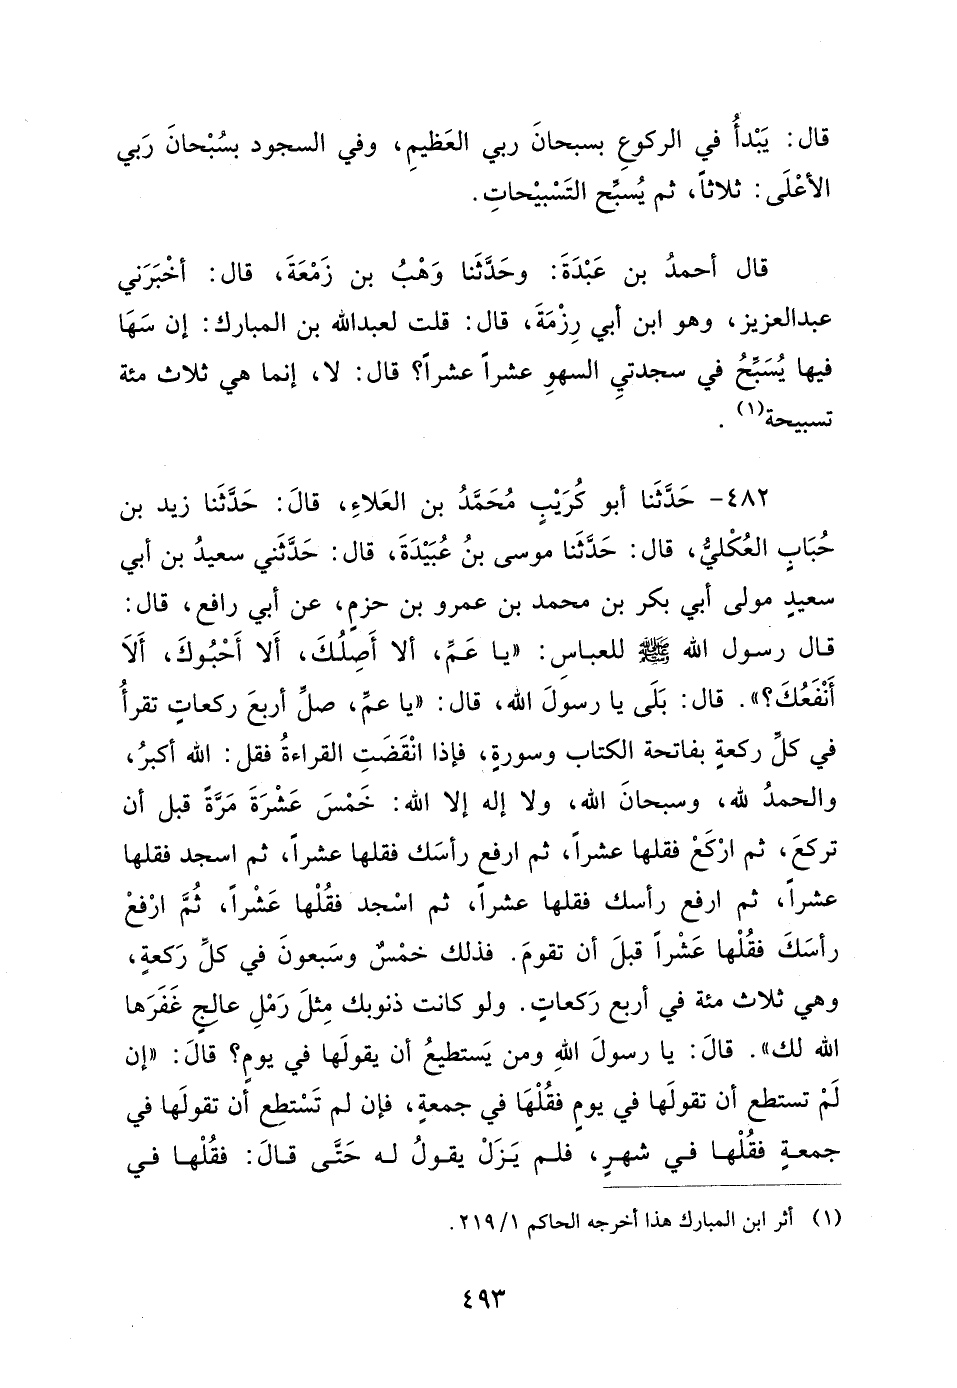 قال: يَبْدأُ في الركوعِ بسبحانَ ربي العَظيمِ، وفي السجود بسُبْحانَ رَبي
الأعْلَى: ثلاثاً، ثم يُسبِّح التَسْبيْحاتِ.
قال أحمدُ بن عَبْدَةَ: وحَدَّثَنا وَهْبُ بن زَمْعَةَ، قال: أخْبَرَني
عبدالعزيز، وهو ابن أبي رِزْمَةَ، قال: قلت لعبدالله بن المبارك: إن سَهَا
فيها يُسَبِّحُ في سجدتيِ السهوِ عشراً عشراً؟ قال: لا، إنما هي ثلاث مئة
تسبيحة(١).
٤٨٢- حَدَّثَنا أبو كُرَيْبٍ مُحَمَّدُ بن العَلاءِ، قالَ: حَدَّثَنا زيد بن
حُبَابٍ العُكْليُّ، قال: حَدَّثَنا موسى بنُ عُبَيْدَةَ، قال: حَدَّثَني سعيدُ بن أبي
سعيدٍ مولى أبي بكر بن محمد بن عمرو بن حزمٍ، عن أبي رافع، قال:
قال رسول الله ﷺ للعباسِ: «يا عَمِّ، ألا أَصِلُكَ، أَلا أَحْبُوكَ، أَلاَ
أَنْفَعُكَ؟». قال: بَلَى يا رسولَ الله، قال: «يا عمِّ، صلِّ أربعَ ركعاتٍ تقرأُ
في كلِّ ركعةٍ بفاتحة الكتاب وسورةٍ، فإذا انْقَضَتِ القراءةُ فقل: الله أكبرُ،
والحمدُ لله، وسبحانَ الله، ولا إله إلا الله: خَمْسَ عَشْرَةَ مَرَّةً قبل أن
تركعَ، ثم ارْكَعْ فقلها عشراً، ثم ارفع رأسَك فقلها عشراً، ثم اسجد فقلها
عشراً، ثم ارفع رأسك فقلها عشراً، ثم اسْجد فقُلْها عَشْراً، ثُمَّ ارْفعْ
رأسَكَ فقُلْها عَشْراً قبلَ أن تقومَ. فذلك خمْسٌ وسَبعونَ في كلِّ رَكعةٍ،
وهي ثلاث مئة في أربع رَكعاتٍ. ولو كانت ذنوبك مِثلَ رَمْلِ عالجٍ غَفَرَها
الله لك». قالَ: يا رسولَ اللهِ ومن يَستطيعُ أن يقولَها في يومٍ؟ قالَ: «إن
لَمْ تستطع أن تقولَها في يومٍ فقُلْهَا في جمعةٍ، فإن لم تَسْتطِع أن تقولَها في
جمعةٍ فقُلْها في شهرٍ، فلم يَزَلْ يقولُ له حَتَّى قالَ: فقُلْها في
(١) أثر ابن المبارك هذا أخرجه الحاكم ١/ ٢١٩.
٤٩٣